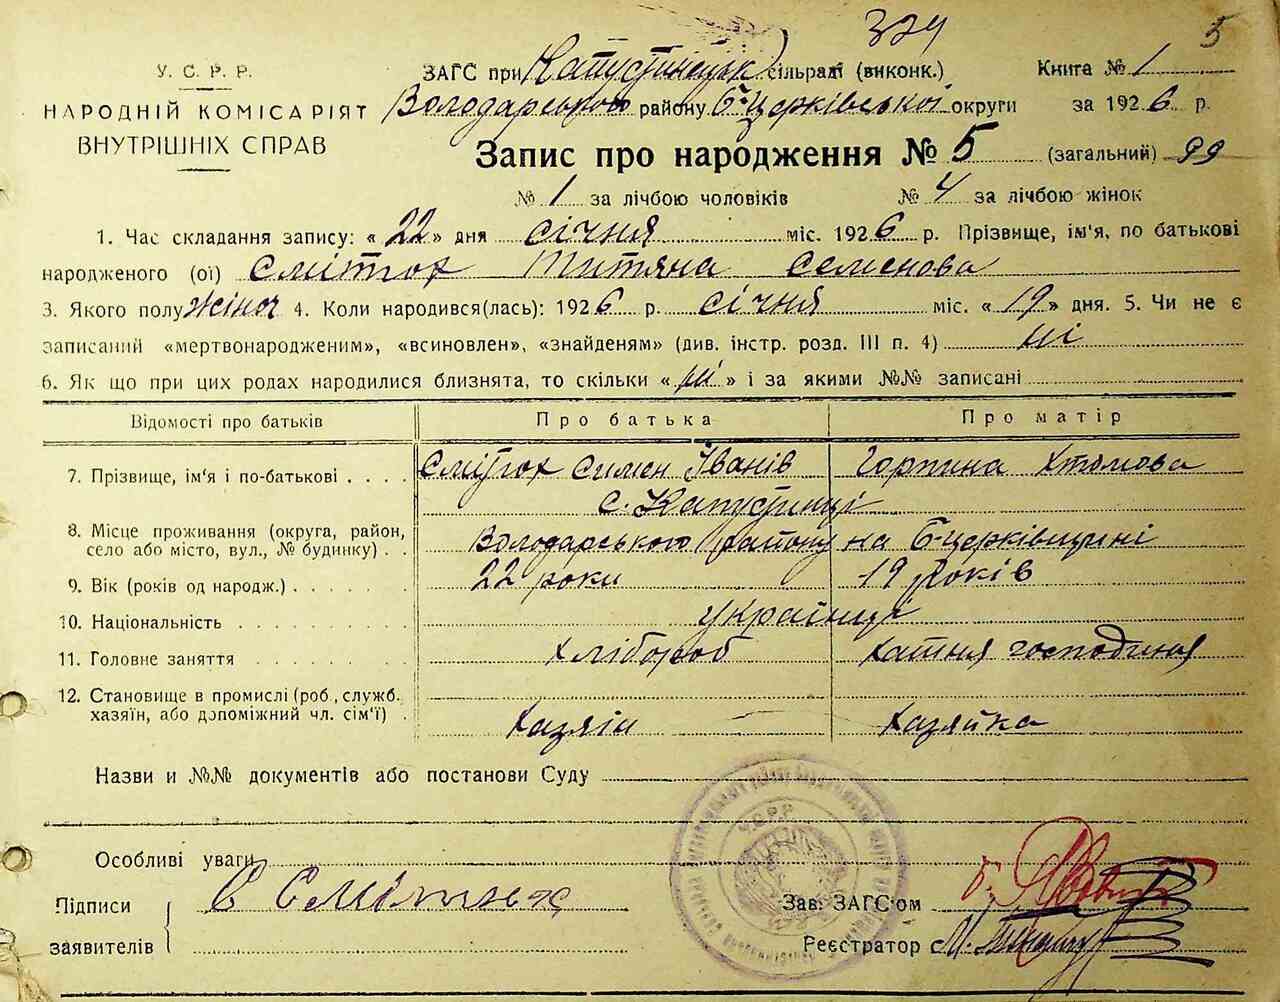 324 5
У. С. Р. Р. ЗАГС при Капустинськ сільраді (виконк.) Книга № 1
НАРОДНІЙ КОМІСАРІЯТ Володарського району Б-Церківської округи за 1926 р.
ВНУТРІШНІХ СПРАВ Запис про народження № 5 (загальний) 99
№ 1 за лічбою чоловіків № 4 за лічбою жінок
1. Час складання запису: « 22 » дня січня міс. 1926 р. Прізвище, ім'я, по батькові
народженого (ої) Смітюх Титяна Семенова
3. Якого полу жіноч 4. Коли народився(лась): 1926 р. січня міс. « 19 » дня. 5. Чи не є
записаний «мертвонародженим», «всиновлен», «знайденям» (див. інстр. розд. III п. 4) ні
6. Як що при цих родах народилися близнята, то скільки « ні » і за якими №№ записані
Відомості про батьків Про батька Про матір
7. Прізвище, ім'я і по-батькові Смітюх Симен Іванів Горпина Хтомова
с. Капустинці
8. Місце проживання (округа, район,
село або місто, вул., № будинку) Володарського району на Б-Церківщині
9. Вік (років од народж.) 22 роки 19 років
10. Національність українці
11. Головне заняття Хлібороб хатня господиня
12. Становище в промислі (роб., служб.
хазяїн, або допоміжний чл. сім'ї) хазяїн хазяйка
Назви и №№ документів або постанови Суду
Особливі уваги
Підписи С Смітюх Зав. ЗАГС'ом
заявителів Реєстратор
У.С.Р.Р.